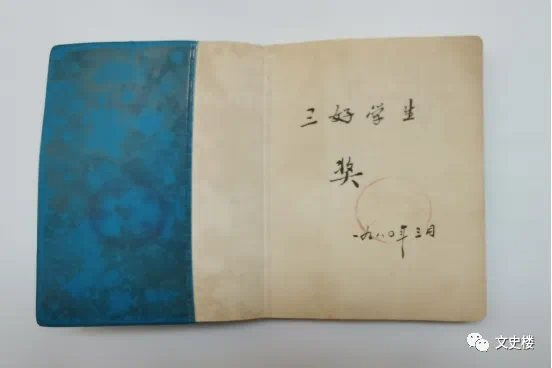 三好学生
奖
一九八〇年三月
文史楼